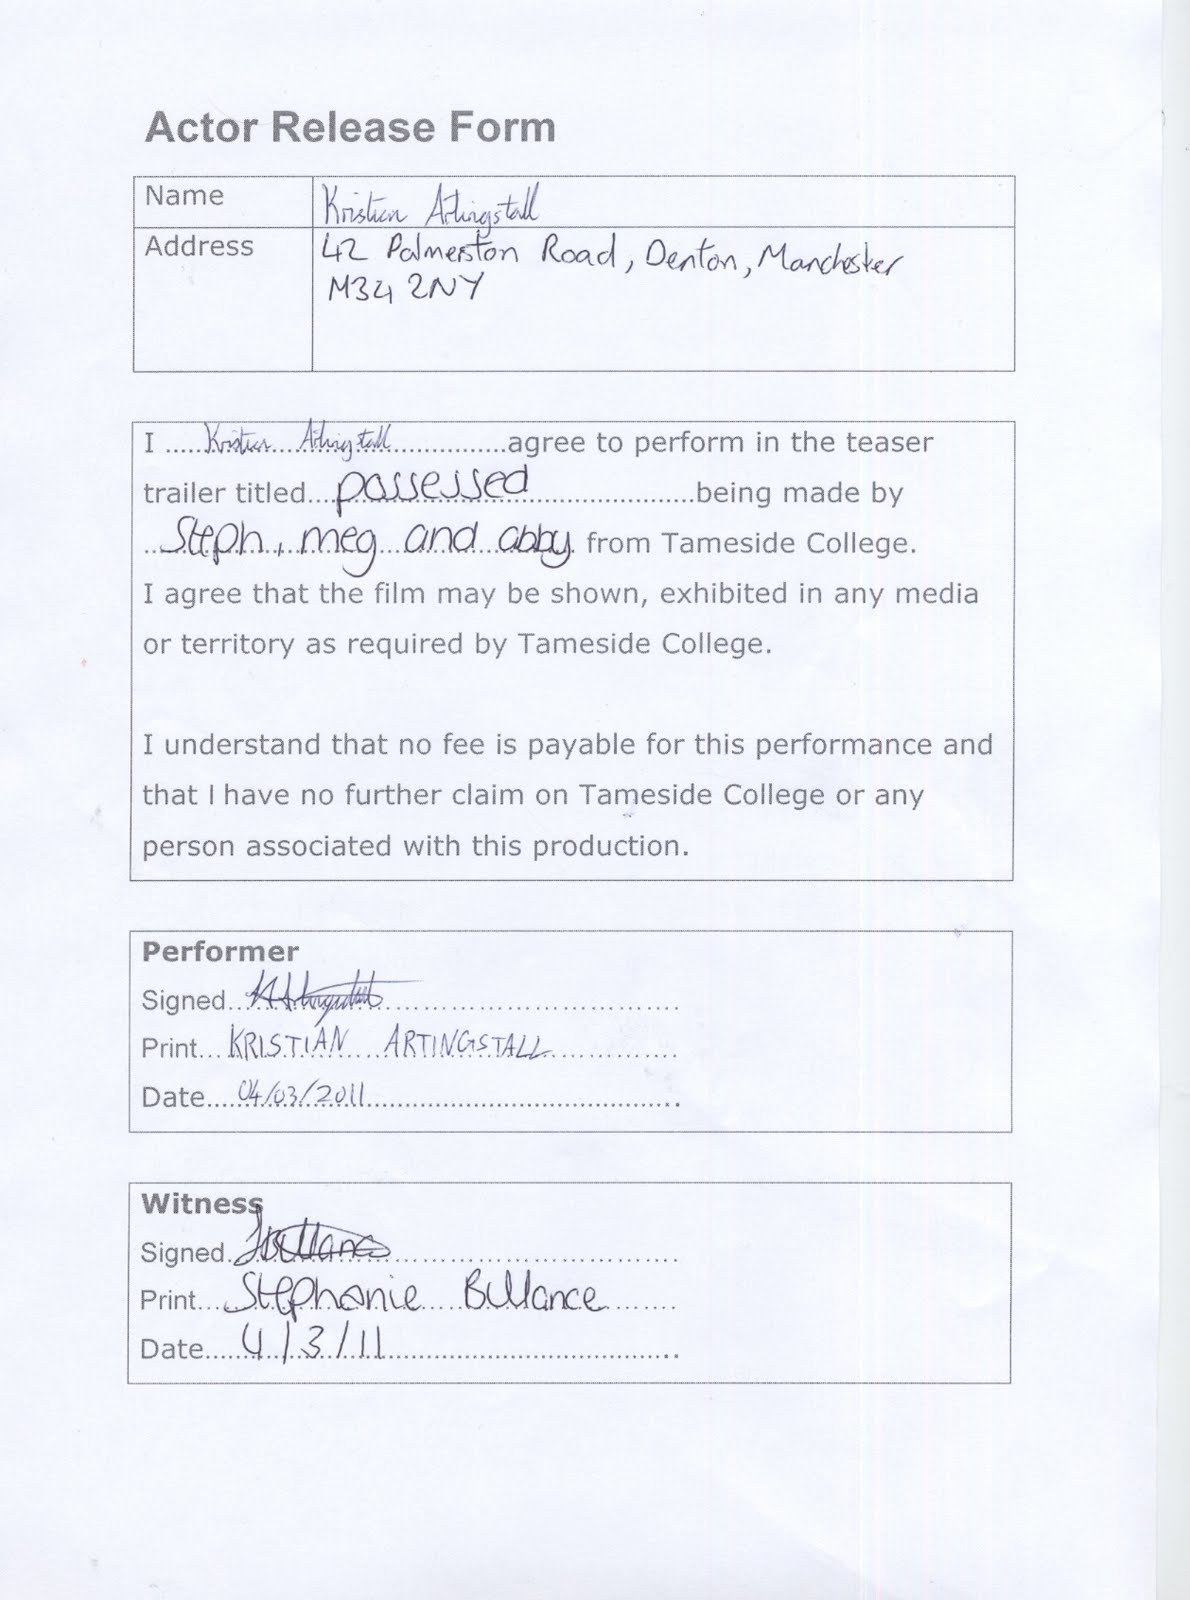 Actor Release Form
Name Kristian Artingstall
Address 42 Palmerston Road, Denton, Manchester
M34 2NY
I .....Kristian Artingstall...............agree to perform in the teaser
trailer titled....possessed......................being made by
...Steph, meg and abby. from Tameside College.
I agree that the film may be shown, exhibited in any media
or territory as required by Tameside College.
I understand that no fee is payable for this performance and
that I have no further claim on Tameside College or any
person associated with this production.
Performer
Signed...
Print...KRISTIAN ARTINGSTALL...............
Date....04/03/2011.....................................
Witness
Signed.SBullance....................................
Print...Stephanie Bullance........
Date.....4/3/11.....................................